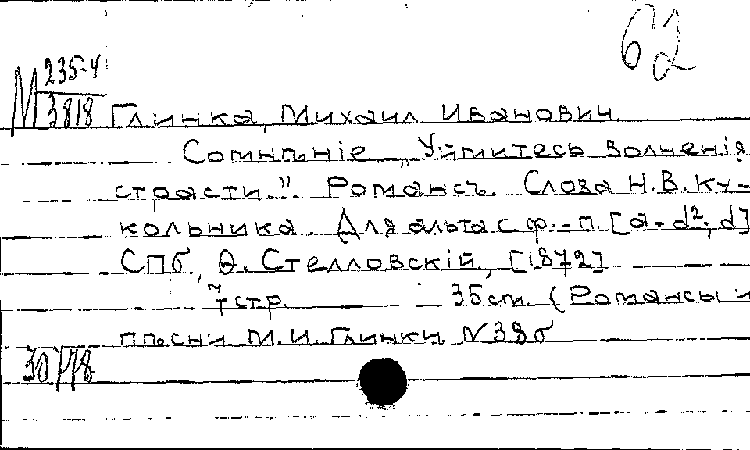 62
М 235-4
3818
Глинка, Михаил Иванович.
Сомнѣніе „Уймитесь волненія
страсти". Романсъ. Слова Н.В. Ку-
кольника. Для альта с ф.-п. [a-d²; d]
СПб, Ѳ. Стелловскій, [1872]
7 стр. 35 см. (Романсы и
пѣсни М.И. Глинки N 38б